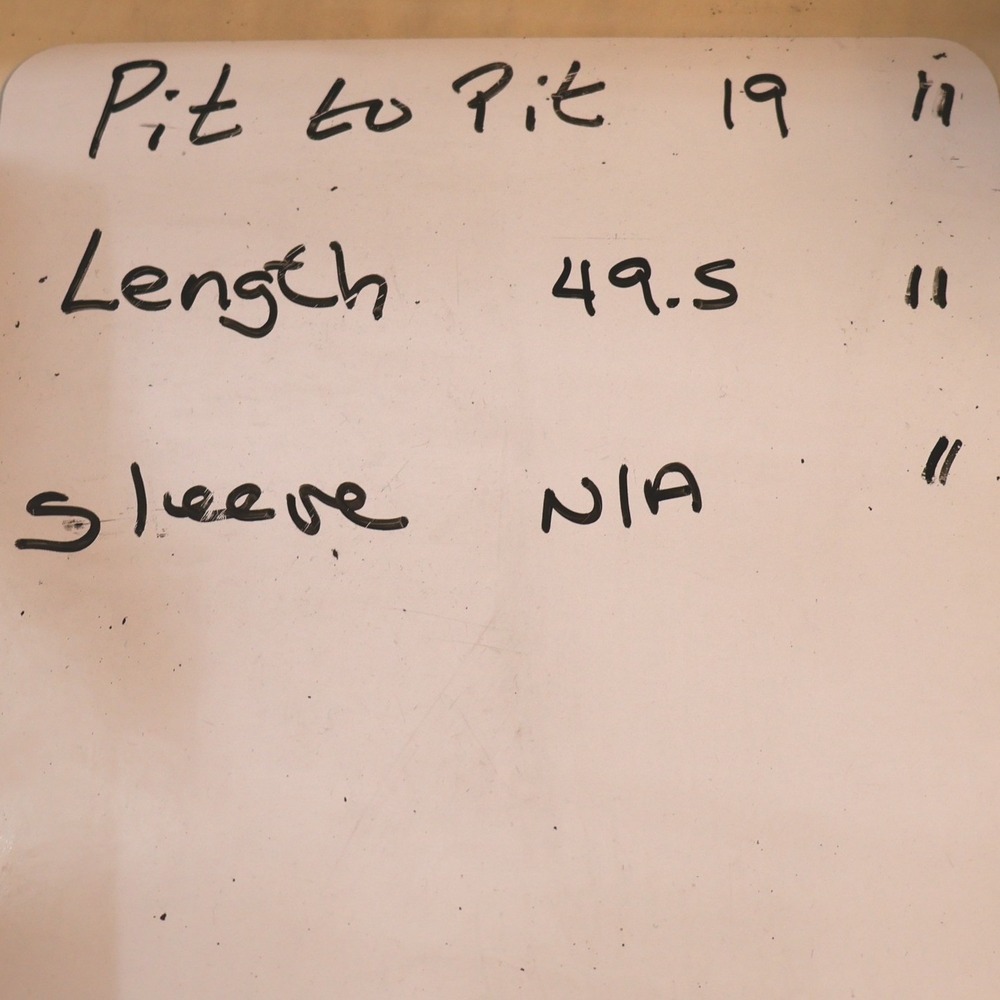 Pit to Pit 19 "
Length 49.5 "
Sleeve N/A "